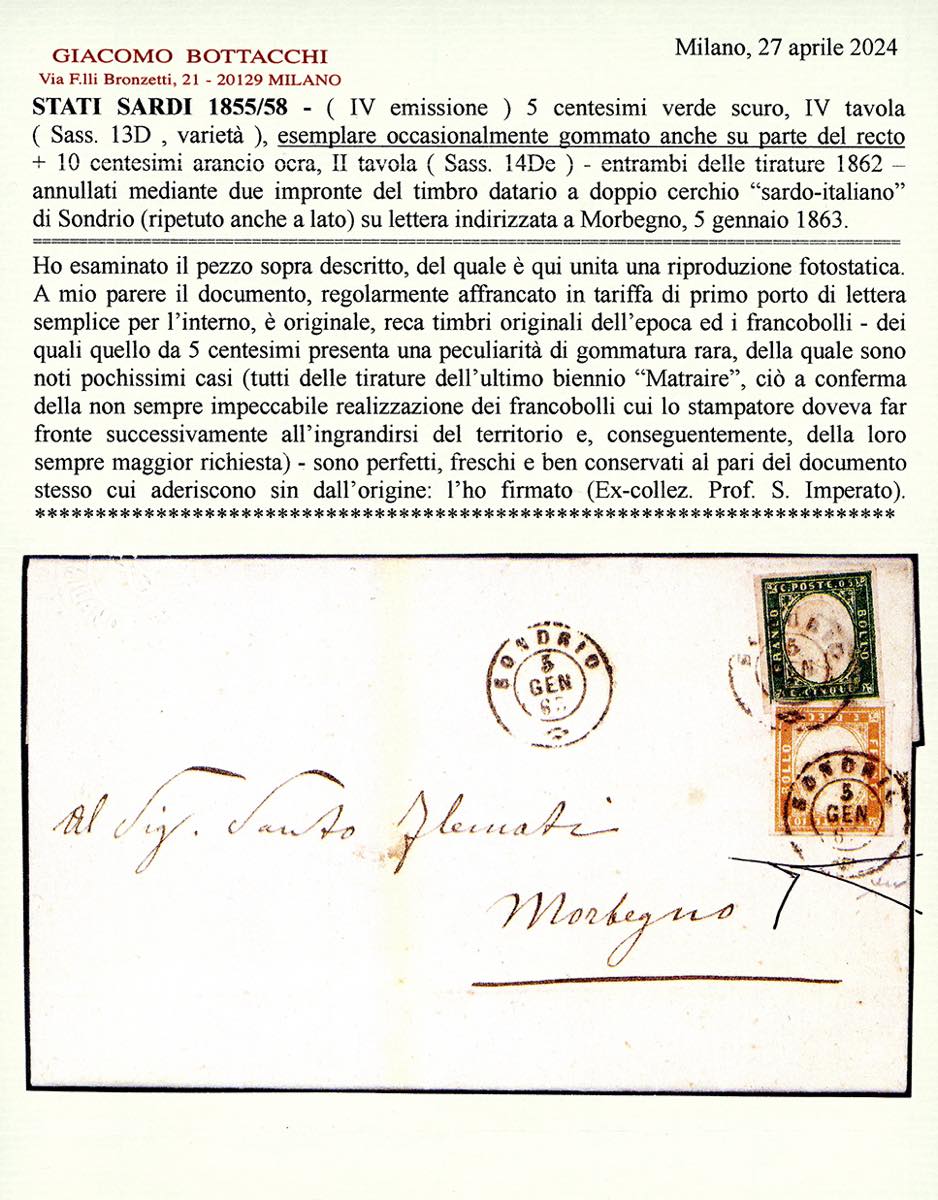 GIACOMO BOTTACCHI
Via F.lli Bronzetti, 21 - 20129 MILANO
Milano, 27 aprile 2024
STATI SARDI 1855/58 - ( IV emissione ) 5 centesimi verde scuro, IV tavola
( Sass. 13D , varietà ), esemplare occasionalmente gommato anche su parte del recto
+ 10 centesimi arancio ocra, II tavola ( Sass. 14De ) - entrambi delle tirature 1862 –
annullati mediante due impronte del timbro datario a doppio cerchio “sardo-italiano”
di Sondrio (ripetuto anche a lato) su lettera indirizzata a Morbegno, 5 gennaio 1863.
Ho esaminato il pezzo sopra descritto, del quale è qui unita una riproduzione fotostatica.
A mio parere il documento, regolarmente affrancato in tariffa di primo porto di lettera
semplice per l’interno, è originale, reca timbri originali dell’epoca ed i francobolli - dei
quali quello da 5 centesimi presenta una peculiarità di gommatura rara, della quale sono
noti pochissimi casi (tutti delle tirature dell’ultimo biennio “Matraire”, ciò a conferma
della non sempre impeccabile realizzazione dei francobolli cui lo stampatore doveva far
fronte successivamente all’ingrandirsi del territorio e, conseguentemente, della loro
sempre maggior richiesta) - sono perfetti, freschi e ben conservati al pari del documento
stesso cui aderiscono sin dall’origine: l’ho firmato (Ex-collez. Prof. S. Imperato).
******************************************************************************
C. POSTE. 05
FRANCO
BOLLO
C. CINQUE
SONDRIO
5
GEN
63
BOLLO
SONDRIO
5
GEN
Al Sig. Santo
Morbegno